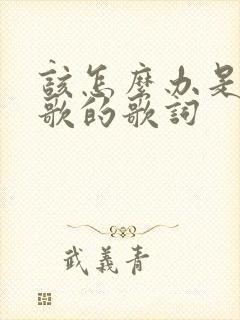 該怎麼办是
歌的歌詞
武義青